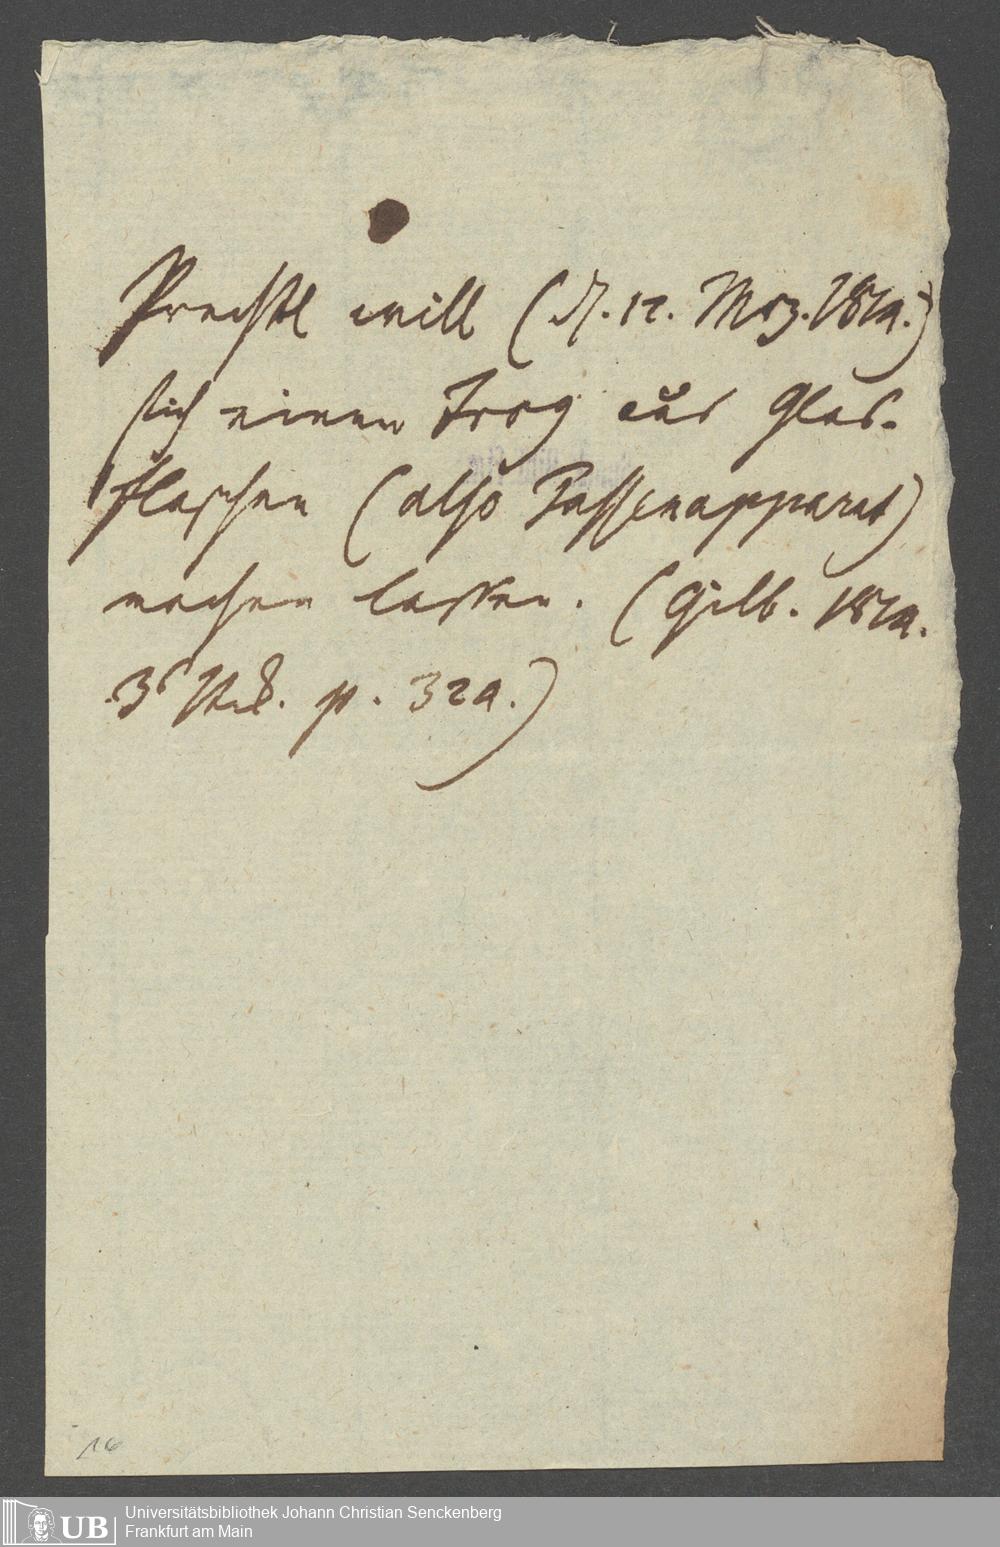 Prechtl will (d. 12. Mrz. 1810.)
sich einen Trog aus Glas-
flaschen (also Tassenapparat)
machen lassen. (Gilb. 1810.
3s Stck. p. 320.)
16
UB
Universitätsbibliothek Johann Christian Senckenberg
Frankfurt am Main